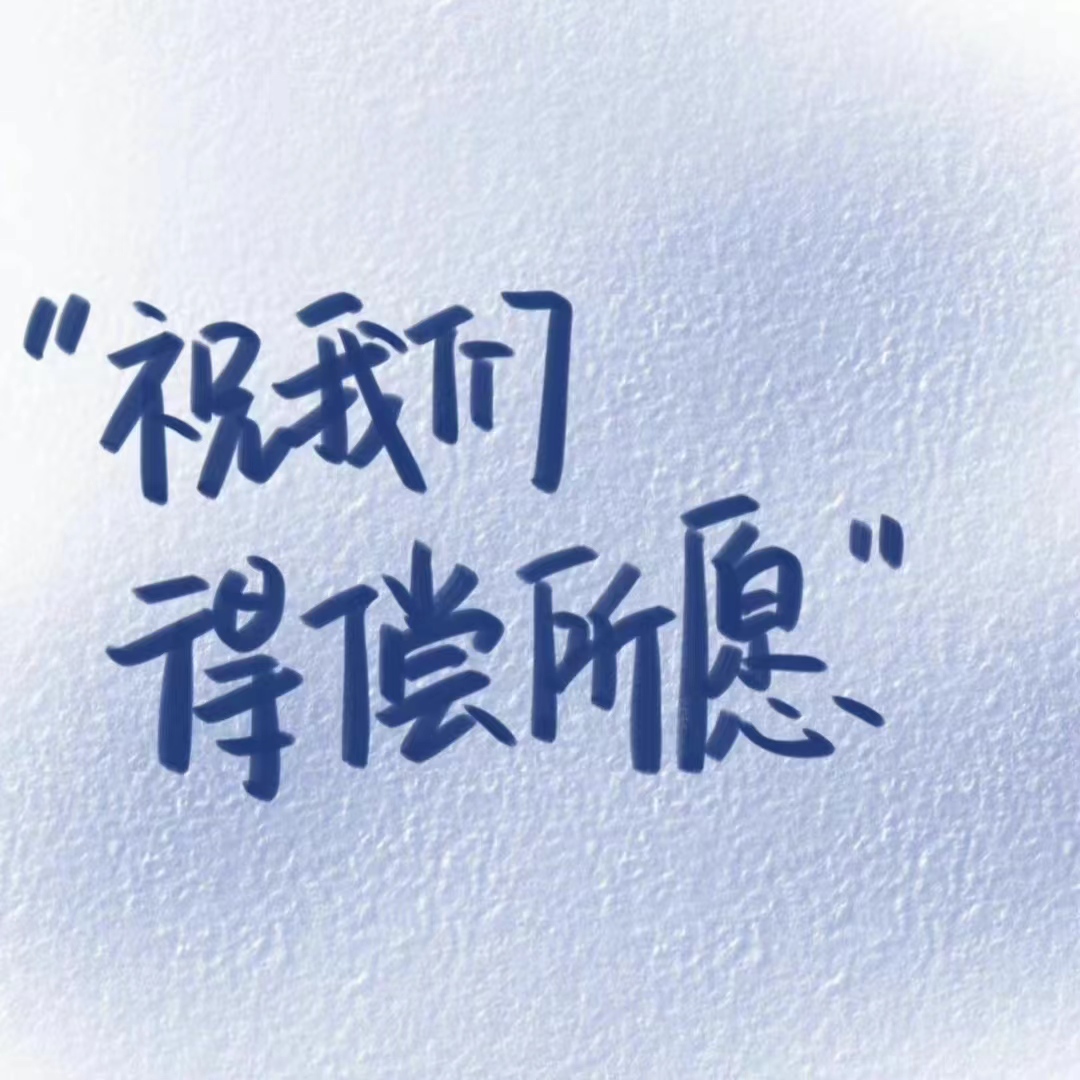 "祝我们
得偿所愿"